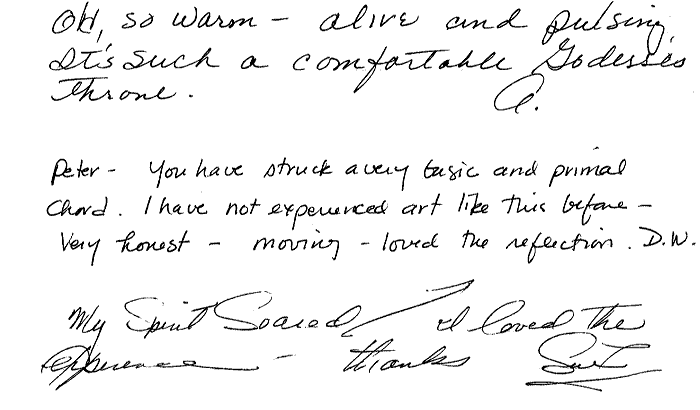 Oh, so warm - alive and pulsing,
It's such a comfortable Godesses
Throne. A.
Peter - You have struck a very basic and primal
chord. I have not experienced art like this before -
Very honest - moving - loved the reflection. D.W.
My Spirit Soared, I loved the
experience - thanks